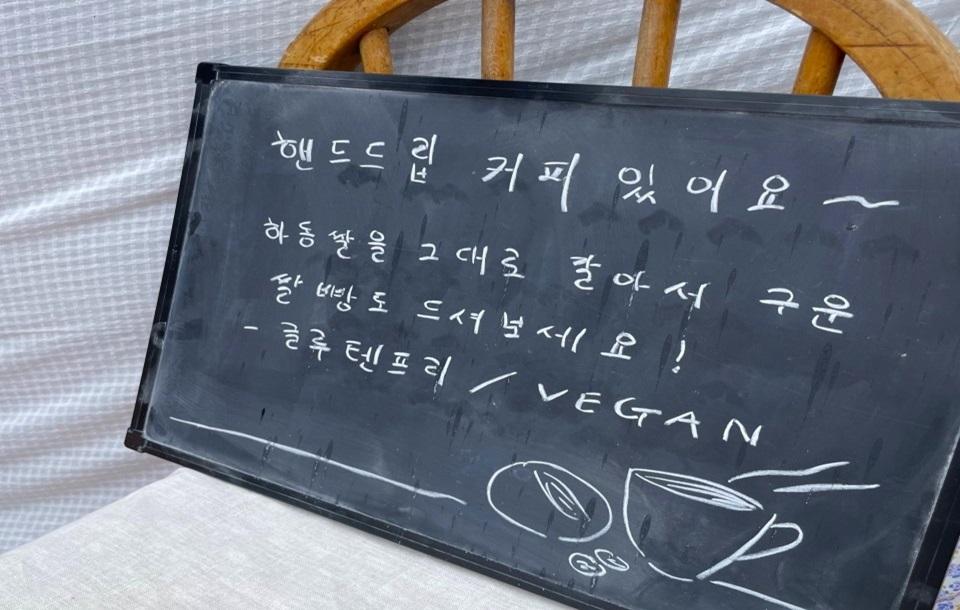 핸드드립 커피 있어요~
하동쌀을 그대로 갈아서 구운
쌀빵도 드셔보세요!
- 글루텐프리 / VEGAN